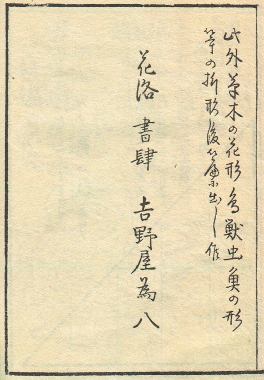 此外草木の花形鳥獣虫魚の形
等の折形後篇に出し候
花洛 書肆 吉野屋為八